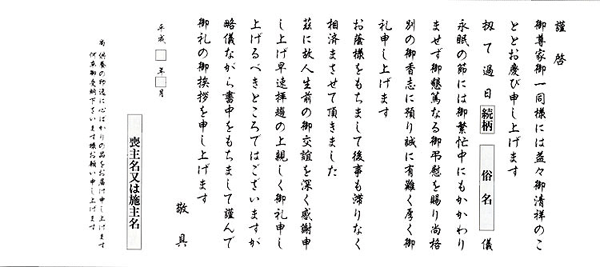 謹啓
御尊家御一同様には益々御清祥のこ
ととお慶び申し上げます
扨て過日続柄 俗名 儀
永眠の節には御繁忙中にもかかわり
ませず御懇篤なる御弔慰を賜り尚格
別の御香志に預り誠に有難く厚く御
礼申し上げます
お蔭様をもちまして後事も滞りなく
相済まさせて頂きました
茲に故人生前の御交誼を深く感謝申
し上げ早速拝趨の上親しく御礼申し
上げるべきところではございますが
略儀ながら書中をもちまして謹んで
御礼の御挨拶を申し上げます
敬具
平成□年□月
喪主名又は施主名
尚供養の印迄に心ばかりの品をお届け申し上げます
何卒御受納下さいます様お願い申し上げます